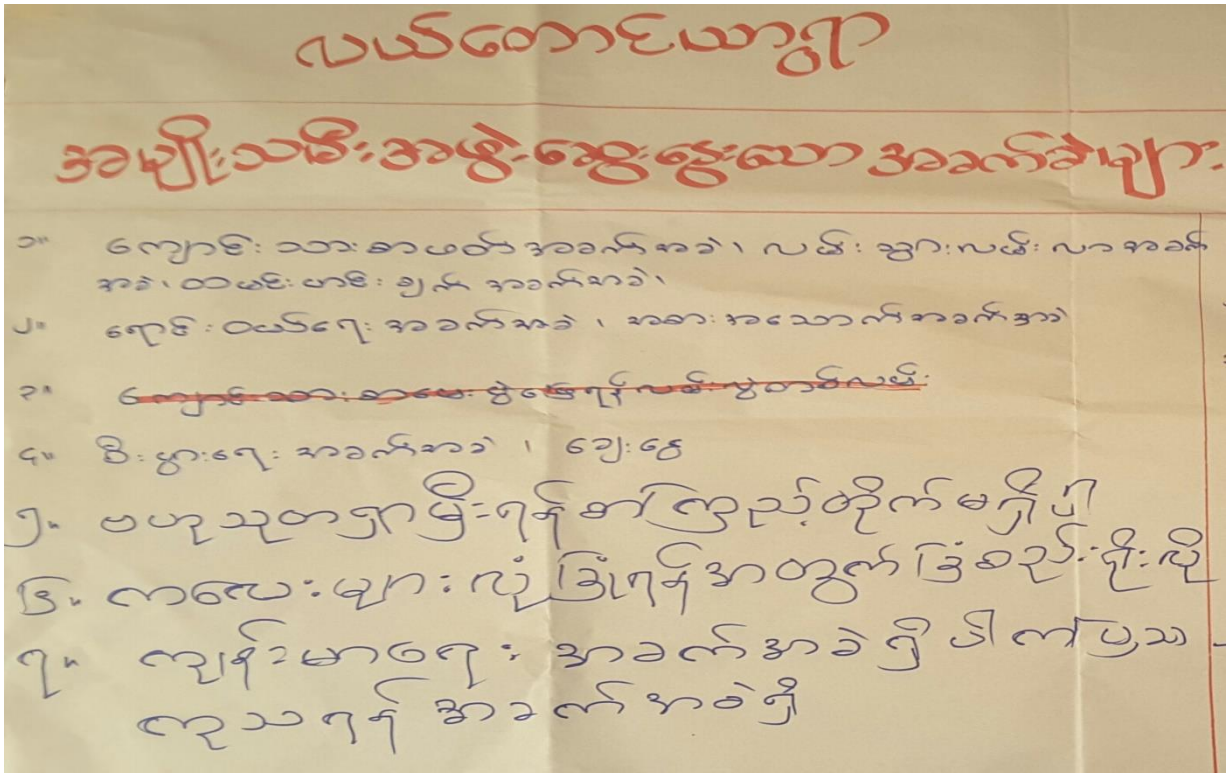 လယ်တောင်ယာရွာ
အမျိုးသမီးအဖွဲ့ဆွေးနွေးသော အခက်ခဲများ
၁။ ကျောင်းသားစာဖတ်အခက်အခဲ၊ လမ်းသွားလမ်းလာအခက်
အခဲ၊ ထမင်းဟင်းချက် အခက်အခဲ၊
၂။ ရောင်းဝယ်ရေး အခက်အခဲ၊ အစားအသောက်အခက်အခဲ
၃။ ကျောင်းသားစာမေးပွဲဖြေရန်လမ်းပွဲတစ်လမ်း
၄။ စီးပွားရေး အခက်အခဲ ၊ ချေးငွေ
၅။ ဗဟုသုတရှာမှီးရန်စာကြည့်တိုက်မရှိပါ
၆။ ကလေးများလုံခြုံရန်အတွက်ခြံစည်းရိုးလို
၇။ ကျန်းမာရေး အခက်အခဲရှိပါက ပြသ
ကုသရန် အခက်အခဲရှိ